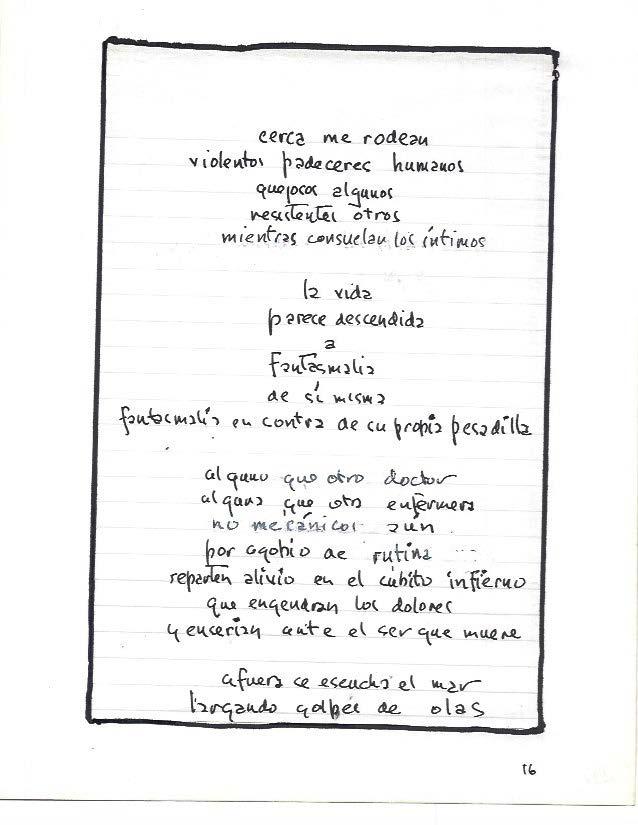 cerca me rodean
violentos padeceres humanos
quejosos algunos
resistentes otros
mientras consuelan los íntimos
la vida
parece descendida
a
fantasmalia
de sí misma
fantasmalia en contra de su propia pesadilla
alguno que otro doctor
alguna que otra enfermera
no mecánicos aún
por agobio de rutina
reparten alivio en el súbito infierno
que engendran los dolores
y enseñan ante el ser que muere
afuera se escucha el mar
largando golpes de olas
16